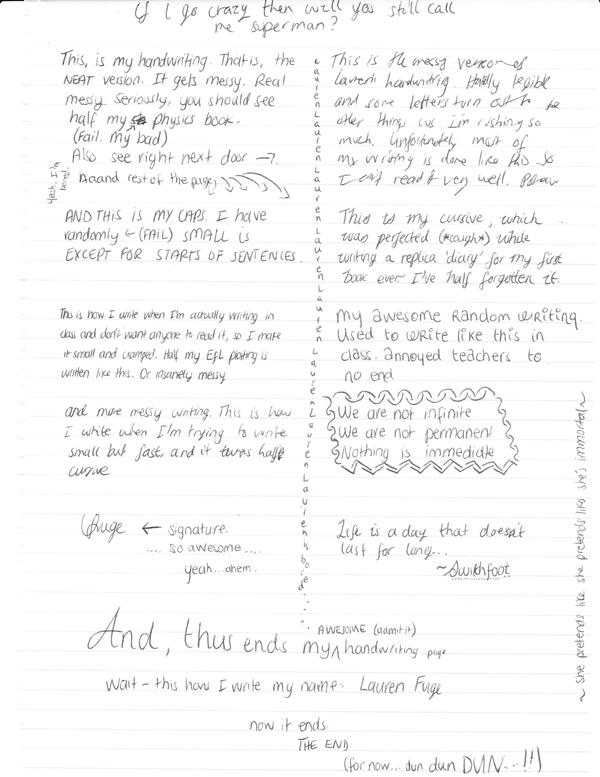 If I go crazy then will you still call
me superman?
This, is my handwriting. That is, the
NEAT version. It gets messy. Real
messy. Seriously, you should see
half my physics book.
(Fail. My bad)
Also see right next door →.
Aaand rest of the page,
Yeah, I'm bored!
AND THIS IS MY CAPS. I HAVE
randomly ← (FAIL) SMALL IS
EXCEPT FOR STARTS OF SENTENCES.
This is how I write when I'm actually writing in
class and don't want anyone to read it, so I make
it small and cramped. Half my EFL plotting is
written like this. Or insanely messy
and more messy writing. This is how
I write when I'm trying to write
small but fast, and it turns half
cursive
LFuge ← signature.
.... so awesome....
yeah...ahem.
LaurenLaurenLaurenLaurenLaurenLaurenLaurenisbored.....
This is the messy version of
Lauren handwriting. Hardly legible
and some letters turn out to be
other things cus I'm rushing so
much. Unfortunately most of
my writing is done like so
I can't read it very well.
This is my cursive, which
was perfected (*cough*) while
writing a replica 'diary' for my first
book ever I've half forgotten it.
my awesome Random WRiting.
Used to write like this in
class. annoyed teachers to
no end
We are not infinite
We are not permanent
Nothing is immediate
Life is a day that doesn't
last for long...
~Swithfoot
~ She pretends like she pretends like she's immortal ~
And, thus ends my ^ handwriting page
AWESOME (admit it)
Wait - this how I write my name. Lauren Fuge
now it ends.
THE END
(for now... dun dun DUN...!!)